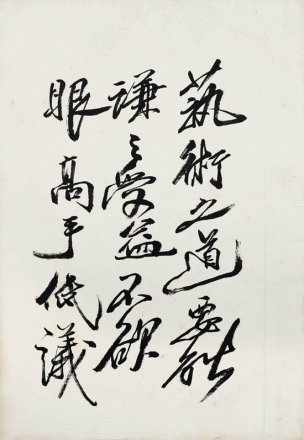 藝術之道要能
謙々受益不欲
眼高手低議